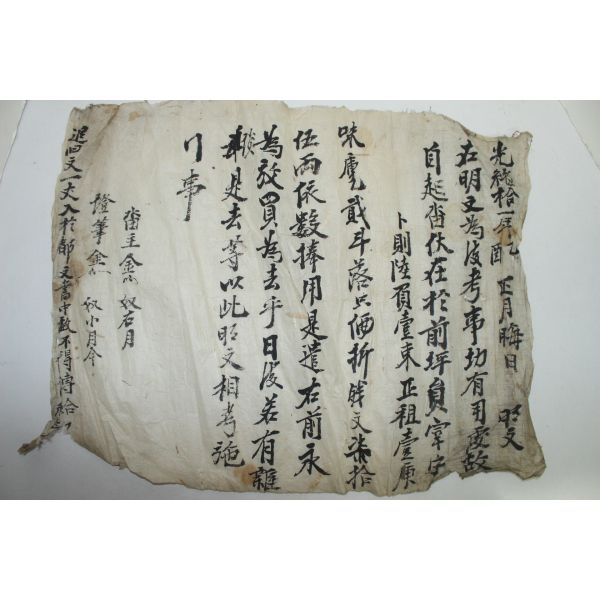 光緖拾一年乙酉正月晦日 明文
右明文爲後考事切有用處故
自起畓伏在於前坪員字
卜則陸負壹束正租壹
味 貳斗落只價折戔文柒拾
伍兩依數捧用是遣右前永
爲放買爲去乎日後若有雜
談是去等以此明文相考施
行事
畓主金 奴右月
證筆金 奴小月今
舊文一丈入於都文書中故不得傳給